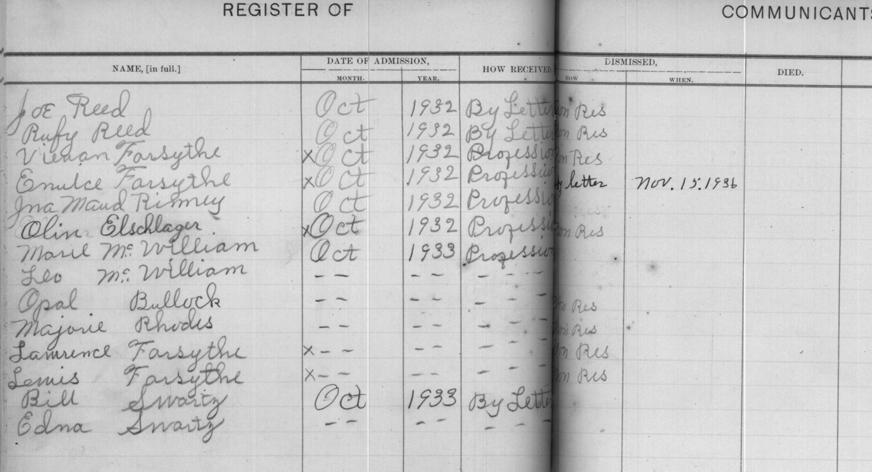 REGISTER OF COMMUNICANTS
NAME, [in full.] DATE OF ADMISSION, HOW RECEIVED DISMISSED, DIED.
MONTH. YEAR. HOW WHEN.
Joe Reed Oct 1932 By Lette on Res
Rufy Reed Oct 1932 By Lette on Res
Farsythe xOct 1932 Professio on Res
Farsythe xOct 1932 Professi letter Nov. 15. 1936
Ina Maud Oct 1932 Professi
Olin Elschlager xOct 1932 Professi on Res
Marie McWilliam Oct 1933 Professio
Leo McWilliam - - - - - -
Opal Bullock - - - - - - Res
Majorie Rhodes - - - - - - on Res
Lawrence Farsythe x - - - - - - on Res
Lewis Farsythe x - - - - - - on Res
Bill Swartz Oct 1933 By Lette
Edna Swartz - - - - - -